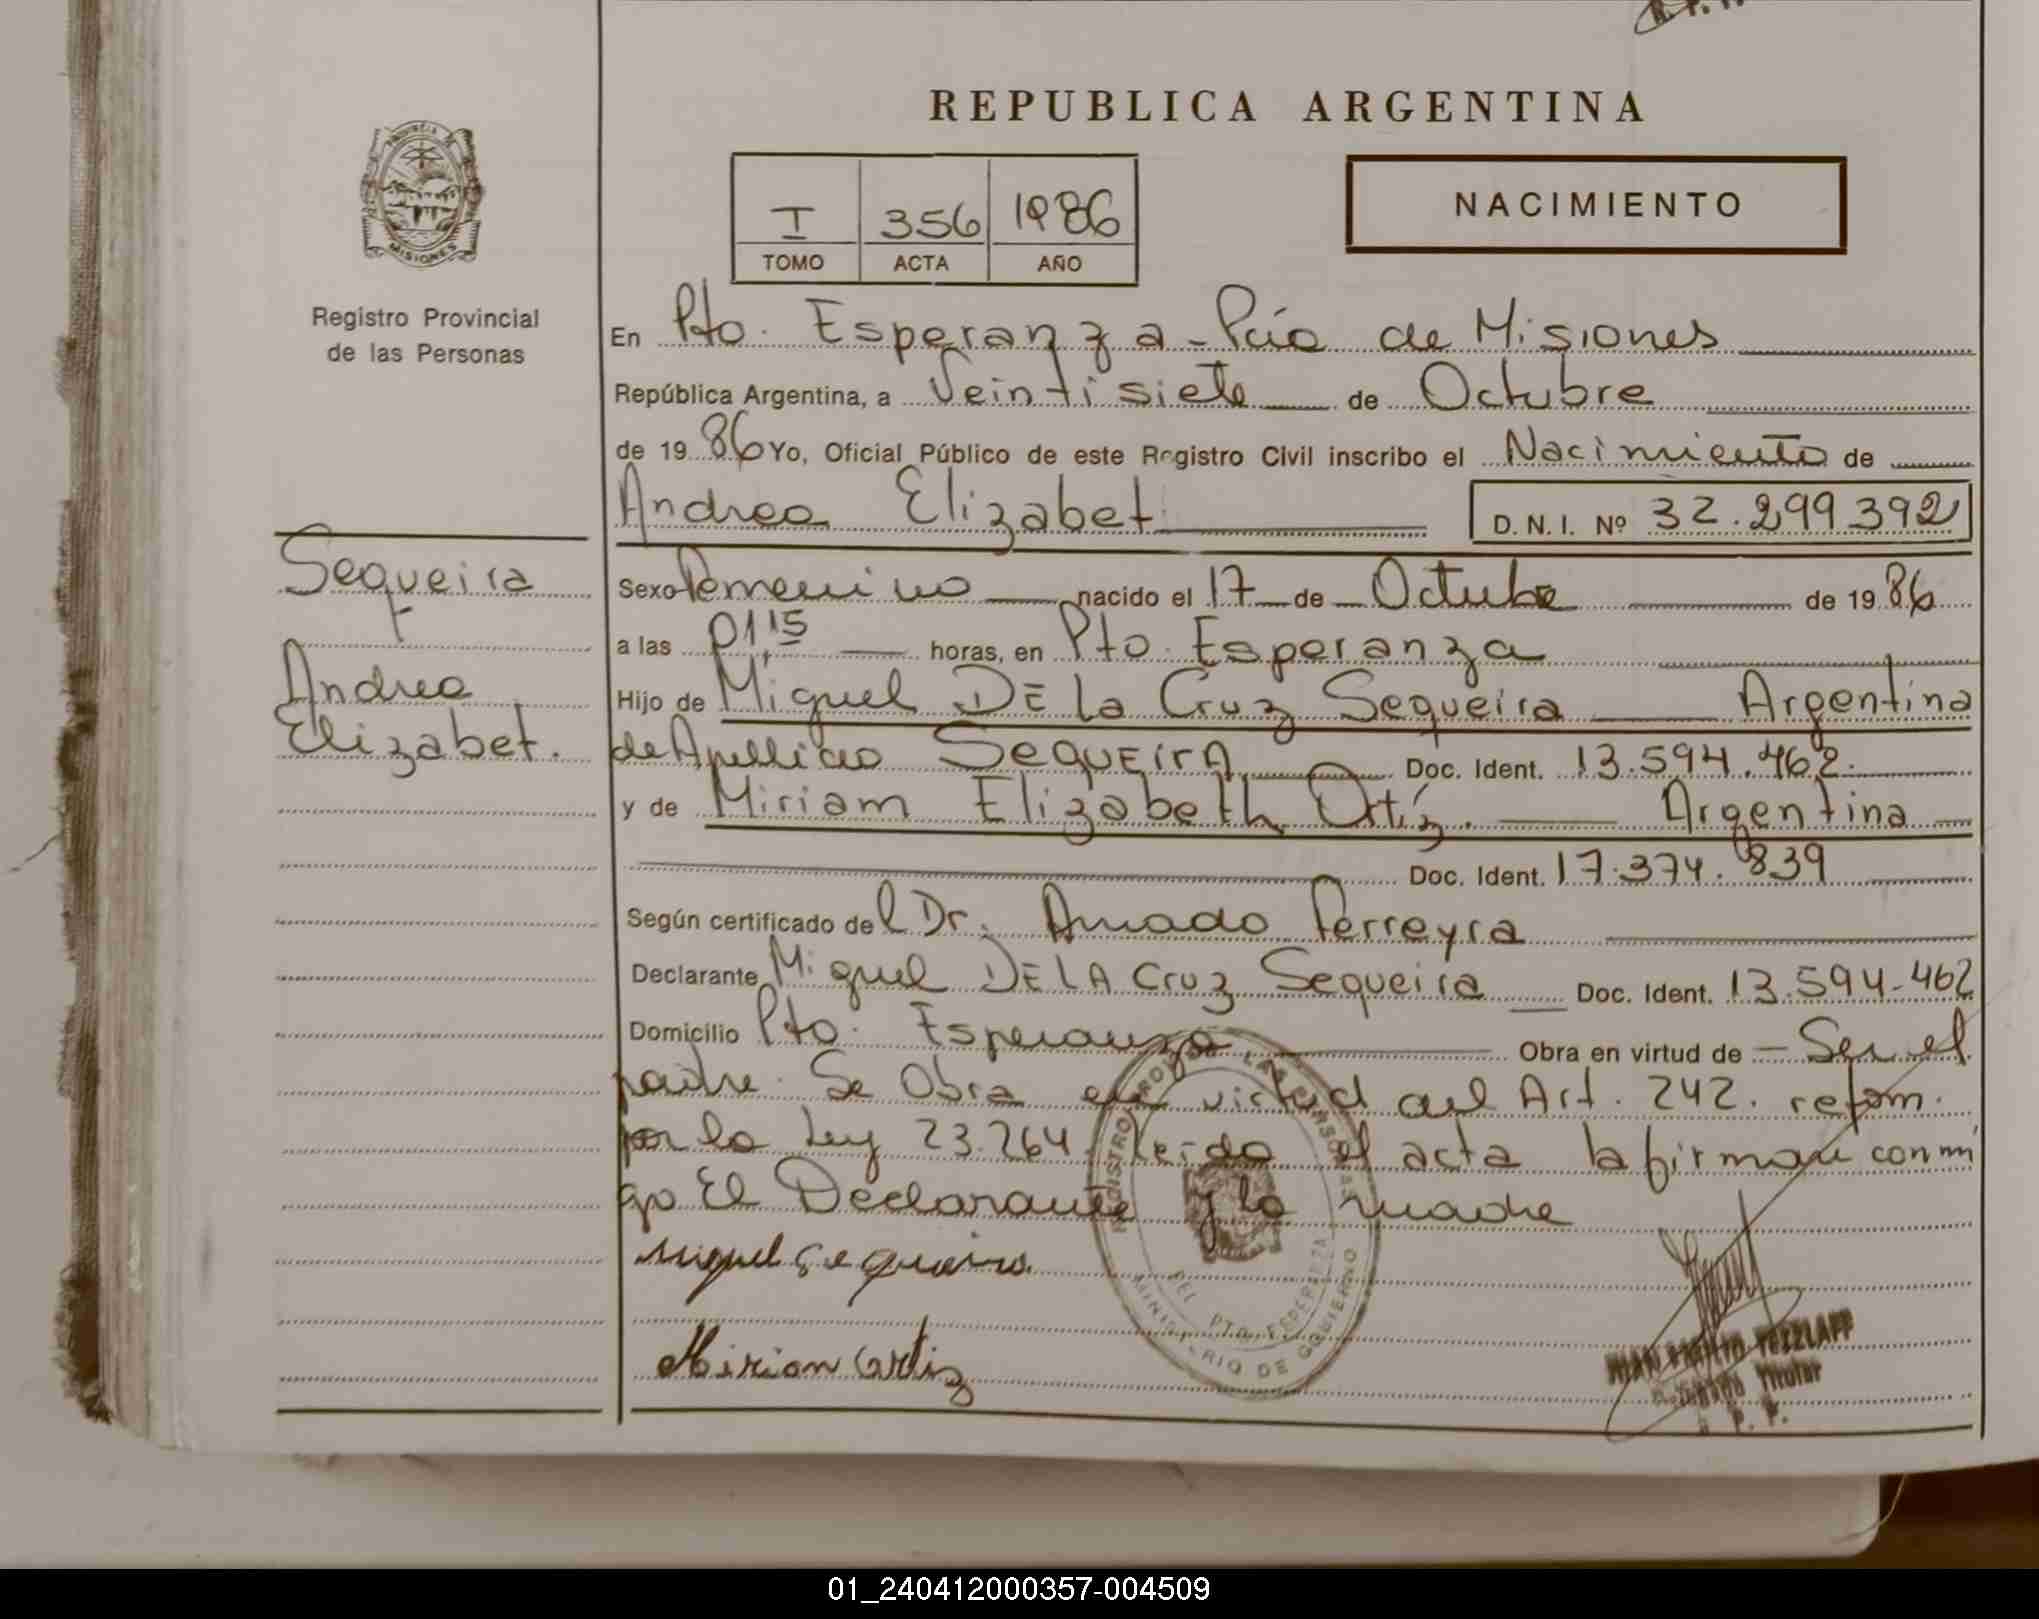 REPUBLICA ARGENTINA
PROVINCIA
MISIONES
Registro Provincial
de las Personas
I 356 1986
TOMO ACTA AÑO
NACIMIENTO
En Pto. Esperanza - Pcia de Misiones
República Argentina, a Veintisiete de Octubre
de 1986 Yo, Oficial Público de este Registro Civil inscribo el Nacimiento de
Andrea Elizabet D. N. I. Nº 32.299.392
Sequeira
Andrea
Elizabet.
Sexo Femenino nacido el 17 de Octubre de 1986
a las 01,15 horas, en Pto. Esperanza
Hijo de Miguel DE la Cruz Sequeira Argentina
de Apellido SEQUEIRA Doc. Ident. 13.594.462.
y de Miriam Elizabeth Ortíz. Argentina
Doc. Ident. 17.374.839
Según certificado del Dr. Amado Ferreyra
Declarante Miguel DE LA Cruz Sequeira Doc. Ident. 13.594-462
Domicilio Pto. Esperanza Obra en virtud de - Ser el
padre. Se Obra en virtud del Art. 242. reform.
por la Ley 23.264. Leida el acta la firman conmi
go El Declarante y la madre
Miguel Sequeira
Mirian Ortiz
REGISTRO PROV. LAS PERSONAS
DEL PTO. ESPERANZA
MINISTERIO DE GOBIERNO
TEZZLAFF
Titular
R. P. P.
01_240412000357-004509